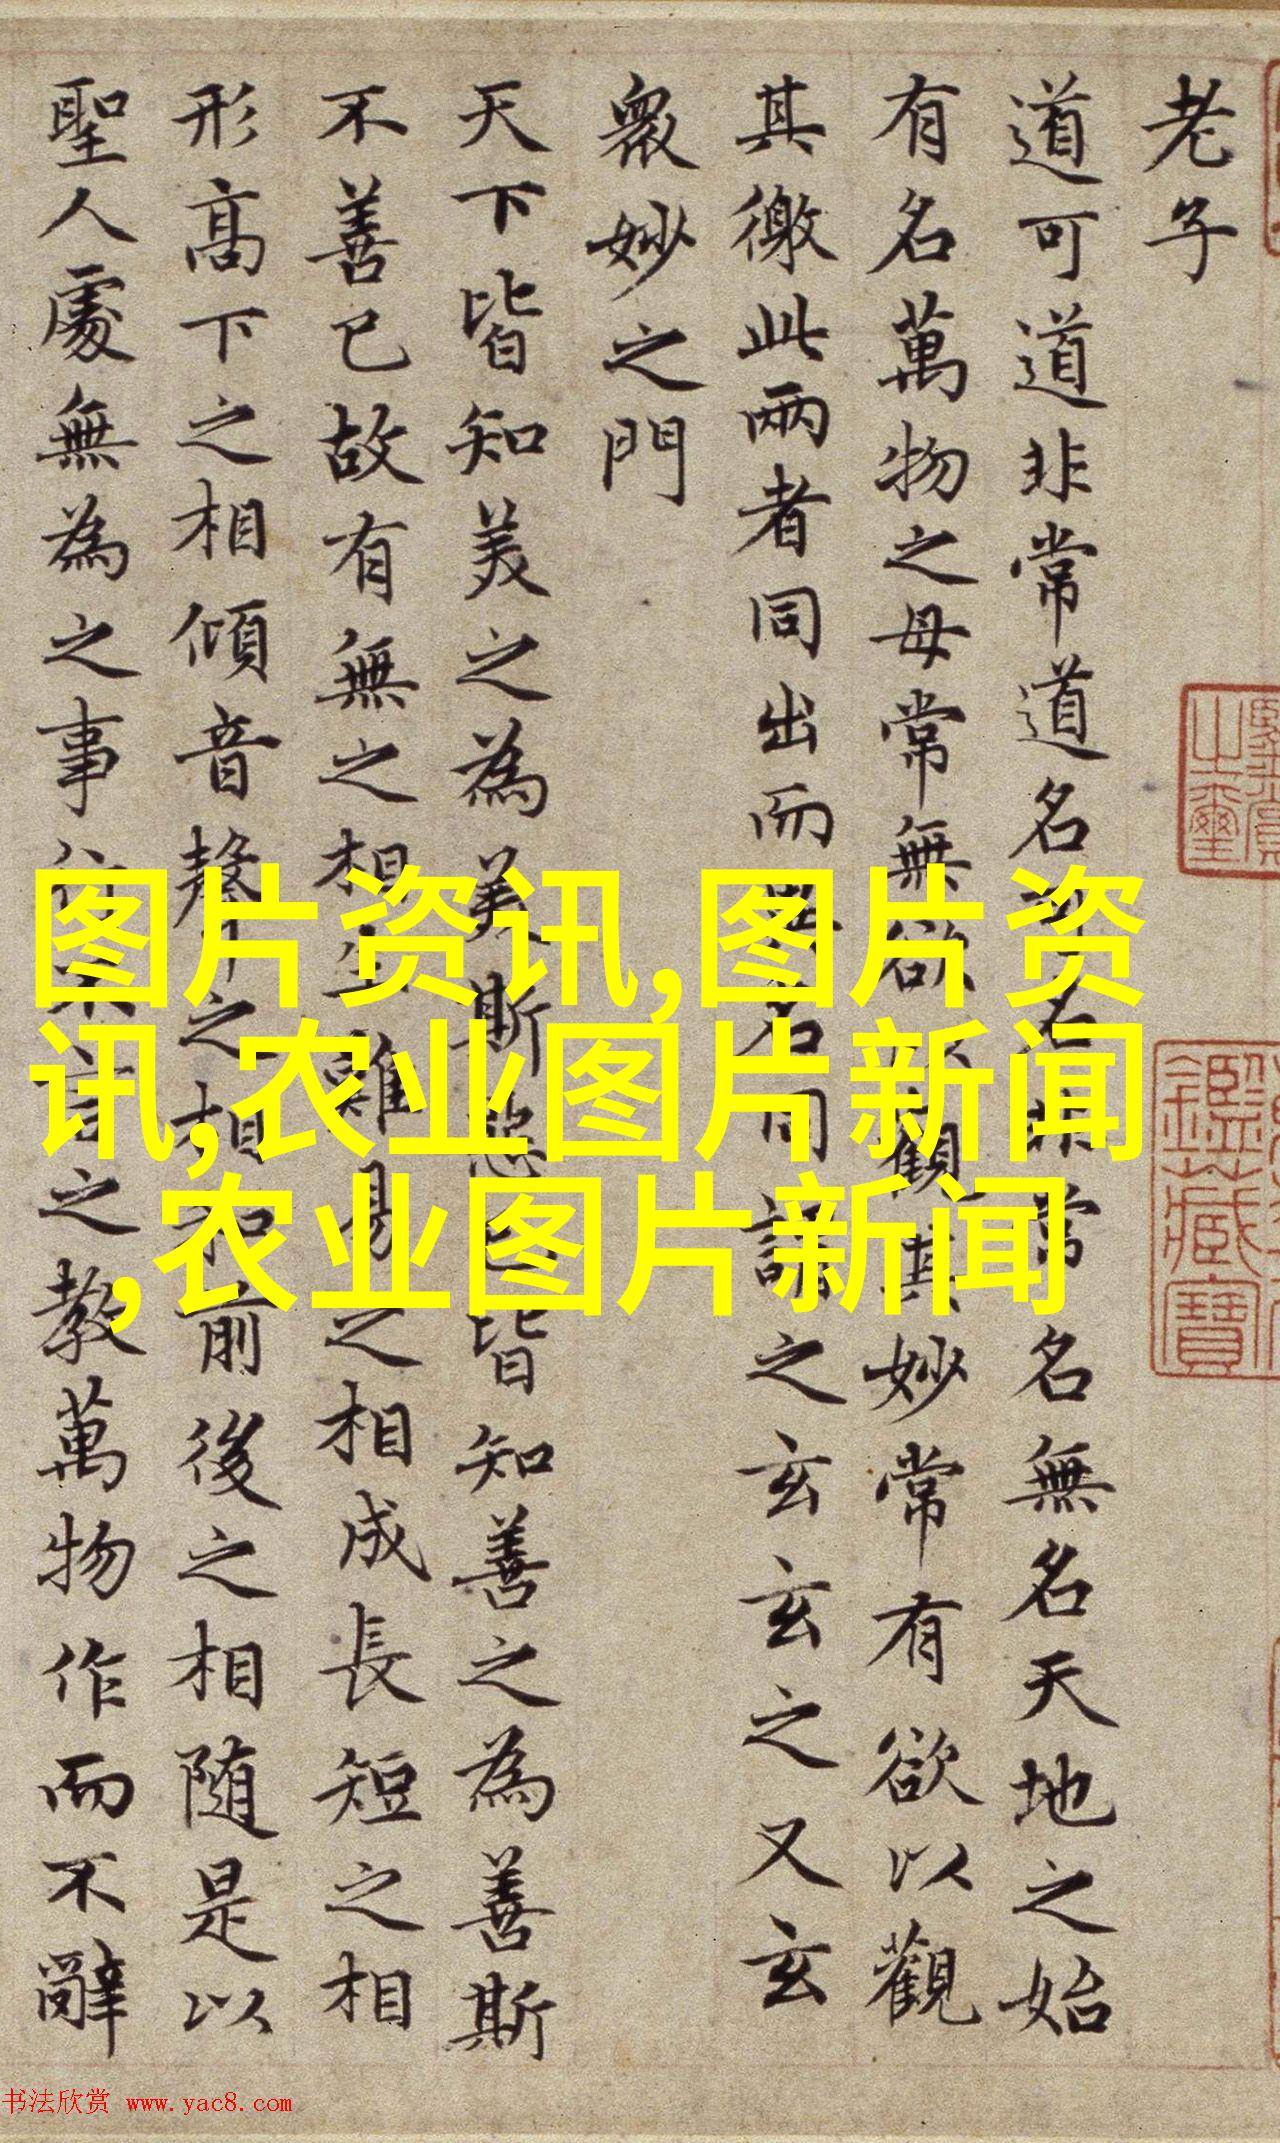 老子
道可道非常道名可名非常名無名天地之始
有名萬物之母常無欲以觀其妙常有欲以觀
其徼此兩者同出而異名同謂之玄玄之又玄
衆妙之門
天下皆知美之為美斯惡已皆知善之為善斯
不善已故有無之相生難易之相成長短之相
形高下之相傾音聲之相和前後之相隨是以
聖人處無為之事行不言之教萬物作而不辭
图片资讯,图片资
讯,农业图片新闻
,农业图片新闻
之璽
鑑藏寶
书法欣赏 www.yac8.com